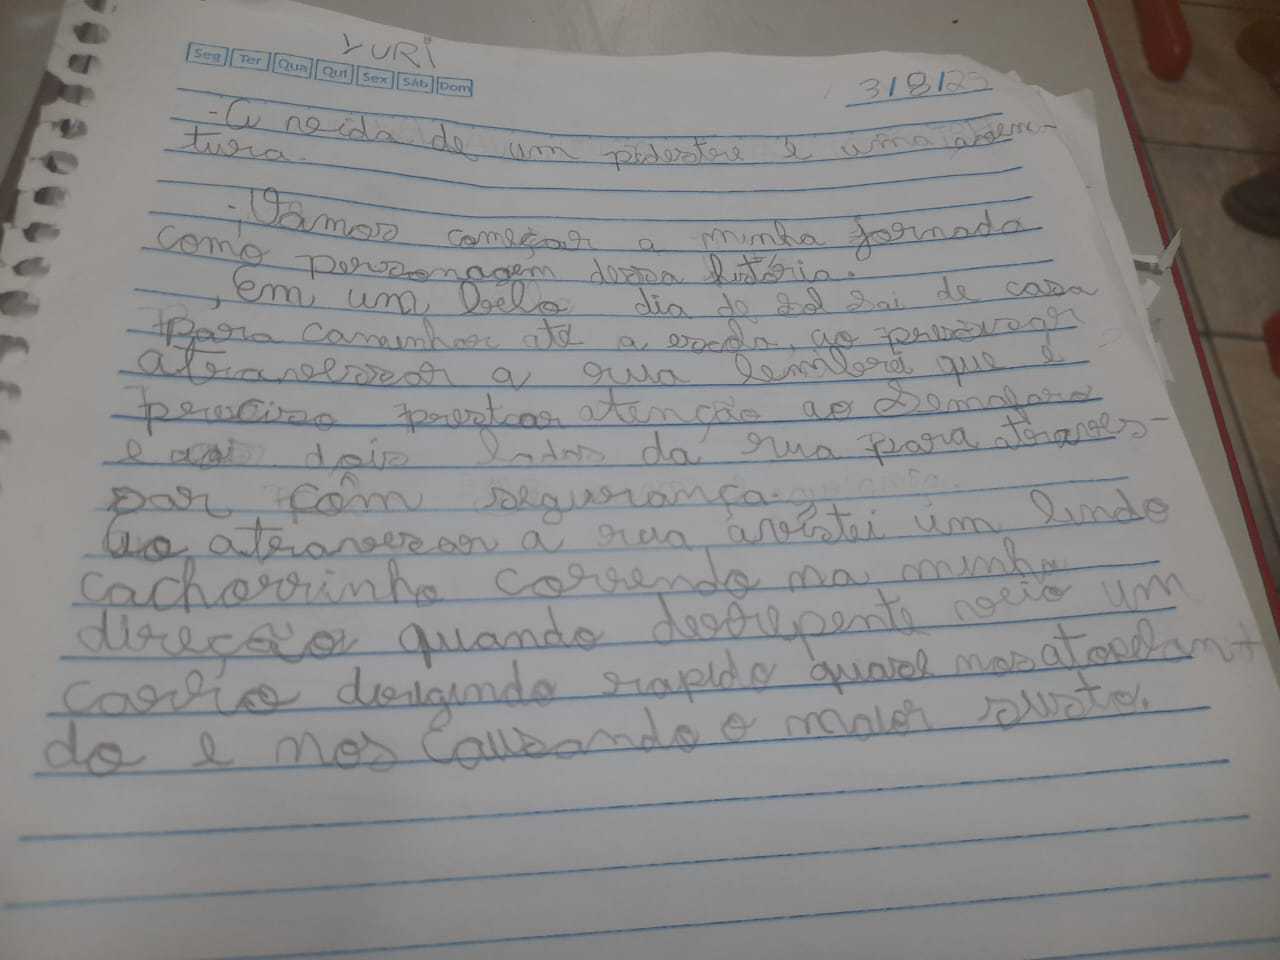 YURi
Seg Ter Qua Qui Sex Sáb Dom
3/8/25
- A veida de um pedestre é uma aventura.
- Vamos começar a minha jornada
como personagem dessa história.
Em um belo dia de sol sai de casa
para caminhar até a escola, ao
atravessar a rua lembrei que é
preciso prestar atenção ao Semaforo
e aos dois lados da rua para atraves-
sar com segurança.
Ao atravessar a rua avistei um lindo
cachorrinho correndo na minha
direção quando derrepente veio um
carro dirigindo rapido quase nos atropelan-
do e nos causando o maior susto.